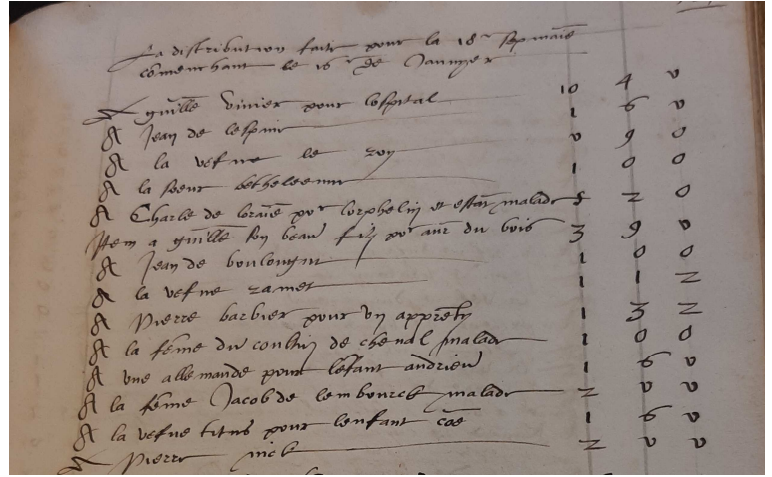 La distribution faite pour la 18e sepmaie
comenchant le 16 de Janvyer
A guille vinier pour lospital 10 4 0
A Jean de lespinr 1 6 0
A la vefue le roy 0 9 0
A la soeur betheleemr 1 0 0
A Charle de loraie por lorphelin & estat malade 5 2 0
Item a guille son beau filz por avr du bois 3 9 0
A Jean de boulongnr 1 0 0
A la vefue ramet 1 1 2
A Pierre barbier pour un appretij 1 3 2
A la feme du de cheval malade 1 0 0
A une allemande pour lefant andrieu 1 6 0
A la feme Jacob de lembourck malade 2 0 0
A la vefue titus pour lenfant 1 6 0
A Pierre 2 0 0